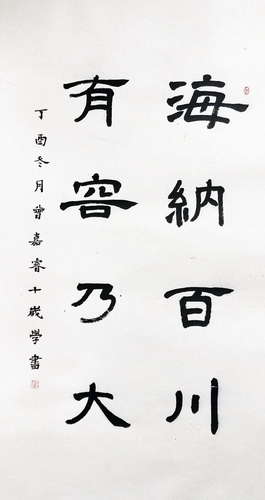 海納百川
有容乃大
丁酉冬月曾嘉睿十歲學書